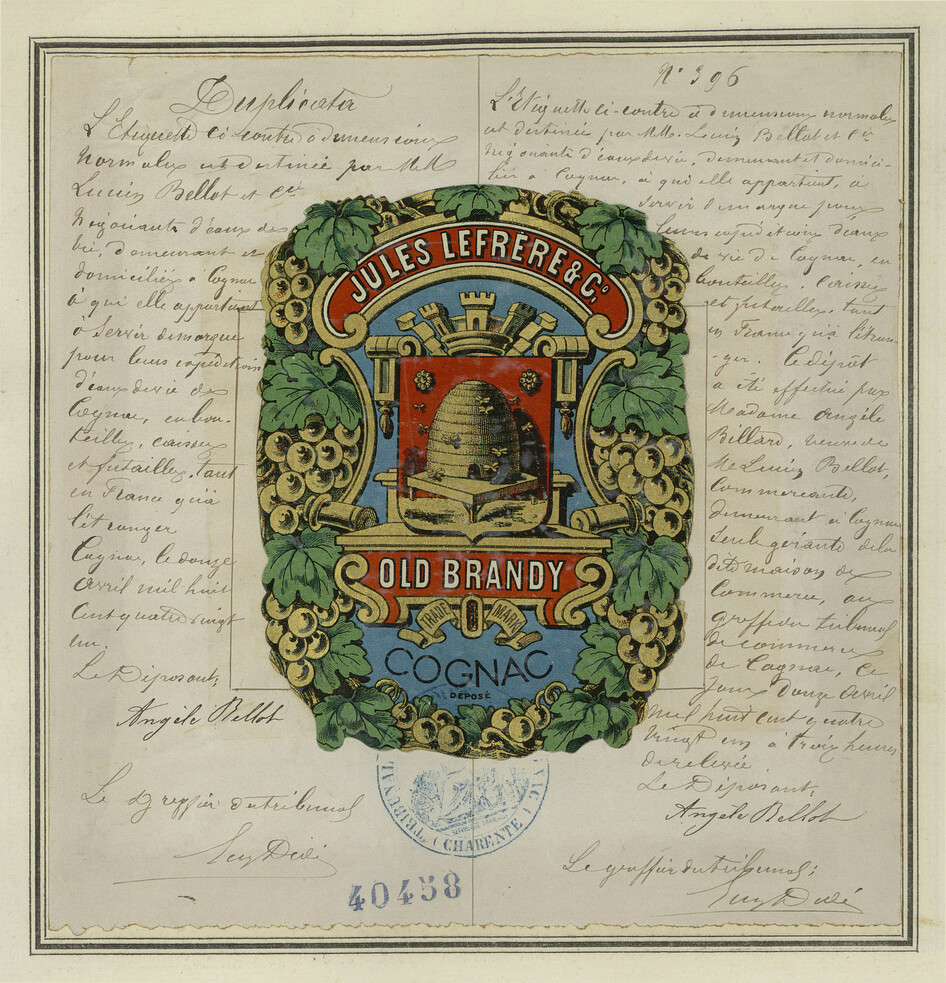 Duplicata
L'Etiquette ci-contre à dimensions
normales est destinée par MM
Lucien Bellot et Cie
Négociants d'eaux de
vie, demeurant et
domiciliés à Cognac
à qui elle appartient
à servir de marque
pour leurs expéditions
d'eaux de vie de
Cognac, en bou-
teilles, caisses
et futailles, tant
en France qu'à
l'étranger
Cognac, le douze
avril mil huit
cent quatre vingt
un.
Le Déposant,
Angèle Bellot
Le Greffier du tribunal
N° 396
L'Etiquette ci-contre à dimensions normales
est destinée par MM. Lucien Bellot et Cie
Négociants d'eaux de vie, demeurant et domici-
liés à Cognac, à qui elle appartient, à
servir de marque pour
leurs expéditions d'eaux
de vie de Cognac, en
bouteilles, caisses
et futailles, tant
en France qu'à l'étran-
-ger. Le dépôt
a été effectué par
Madame Angèle
Billard, veuve de
Mr Lucien Bellot,
Commerçante,
demeurant à Cognac
seule gérante de la
dite maison de
Commerce, au
greffe du tribunal
de commerce
de Cognac, ce
jour douze avril
mil huit cent quatre
vingt un à trois heures
de relevée
Le Déposant,
Angèle Bellot
Le greffier du tribunal;
JULES LEFRÈRE & Co.
OLD BRANDY
TRADE MARK
COGNAC
DÉPOSÉ
TRIBUNAL
(CHARENTE)
40458